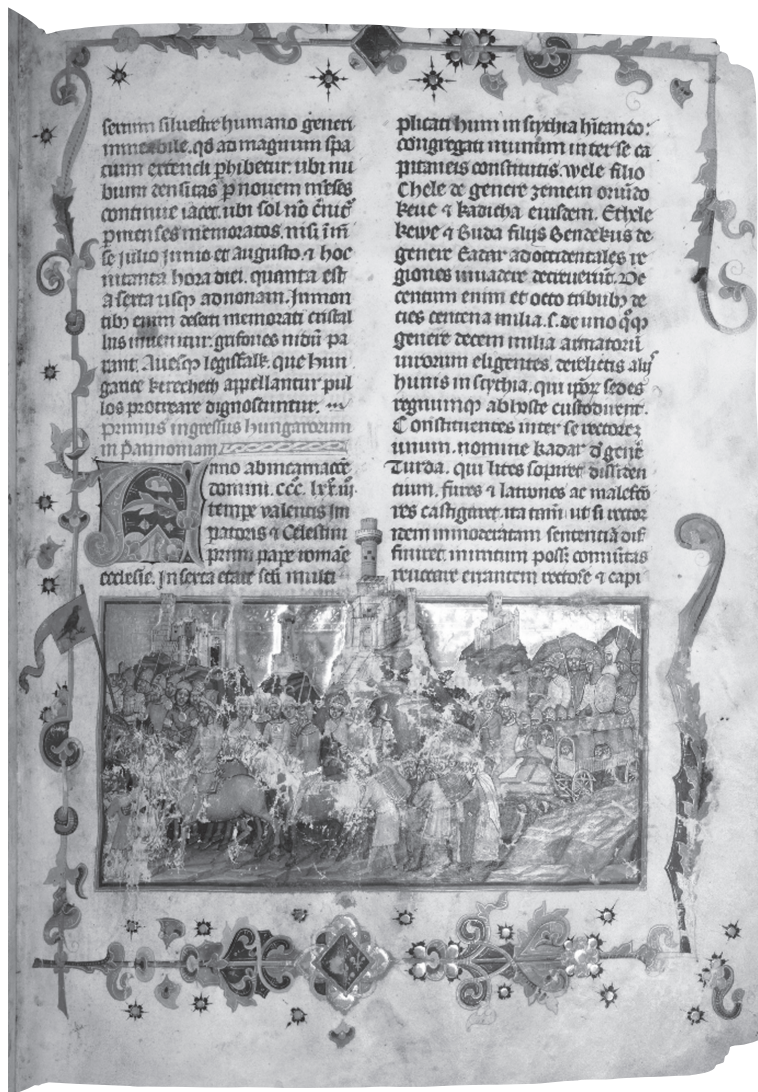 serrum siluestre humano generi
inmeabile. qd ad magnum spa
cium extendi phibetur. ubi nu
bium densitas p nouem menses
continue iacet. ubi sol nō cnit᷑
p menses memoratos. nisi im
se Julio Junio et augusto. ⁊ hoc
in tanta hora diei. quanta est
a serta usq ad nonam. In mon
tibꝫ enim deserti memorati cristal
lus inuenitur. grifones nidum pa
rant. Auesq legisfalk. que hun
gance kerecheth appellantur pul
los procreare dignoscuntur.
primus ingressus hungarorum
in pannoniam
Anno ab incarnacōe
domini. ccc. lxxiij
tempe valentis im
patoris ⁊ Celestini
primi pape romāe
ecclesie. In serta etate scli multi
plicati huni in scythia hitando:
congregati in unum inter se ca
pitaneis constitutis. wele filio
Chele de genere zemein oriūdo
keue ⁊ kadicha eiusdem. Ethele
kewe ⁊ Buda filijs Bendekus de
genere Eadar ad occidentales re
giones inuadere decreuerūt. De
centum enim et octo tribubꝫ de
cies centena milia. s. de uno qͦqꝫ
genere decem milia armatorū
uirorum eligentes. derelictis alijs
hunis in scythia. qui ipoꝝ sedes
regnumqꝫ ab hoste custodirent.
Constituentes inter se rectorez
unum. nomine kadar d genere
Turda. qui lites sopiret dissiden
tium. fures ⁊ latrones ac malefco
res castigaret. ita tamē ut si rector
idem inmoderatam sentenciā dif
finiret. in irritum posset comuītas
reuocare errantem rectorē ⁊ capi